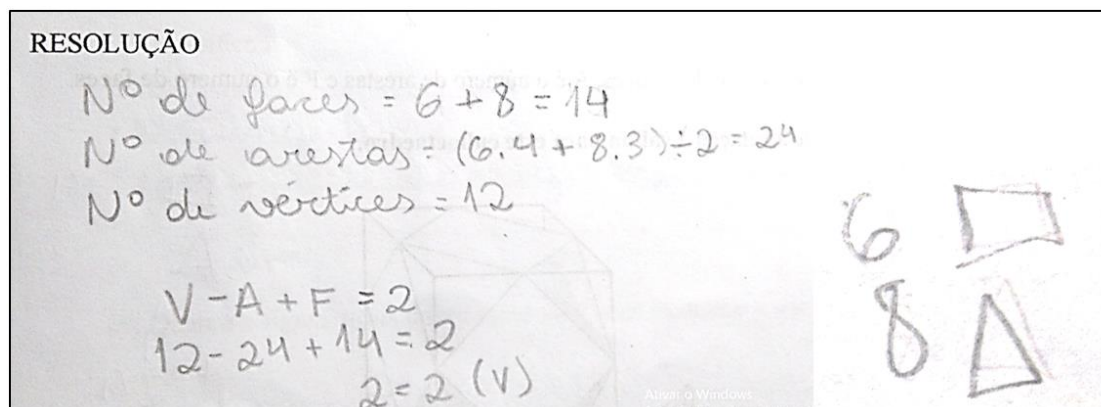 RESOLUÇÃO
Nº de faces = 6 + 8 = 14
Nº de arestas = (6.4 + 8.3) ÷ 2 = 24
Nº de vértices = 12
V - A + F = 2
12 - 24 + 14 = 2
2 = 2 (V)
6
8
Ativar o Windows